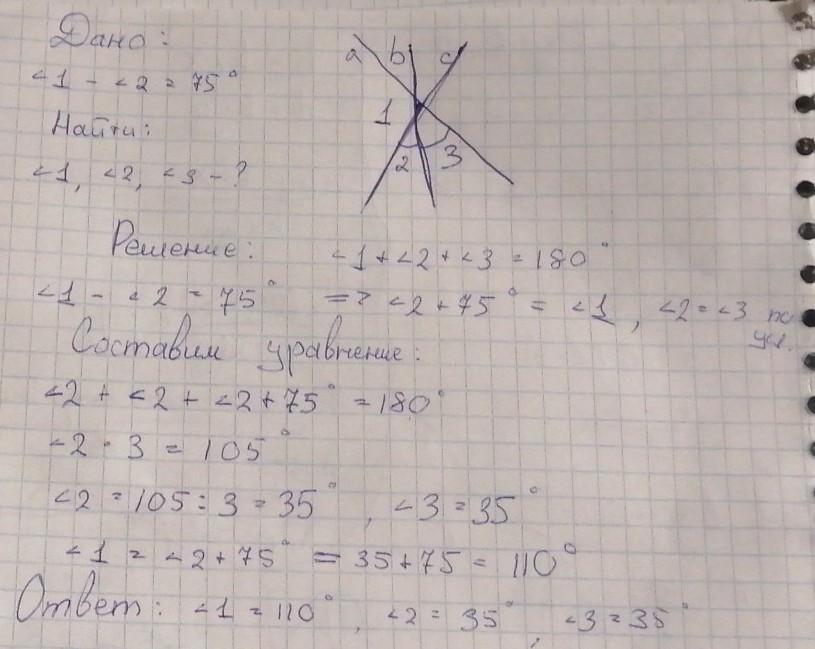 Дано:
∠1 - ∠2 = 75°
Найти:
∠1, ∠2, ∠3 - ?
a b c
1
2 3
Решение: ∠1 + ∠2 + ∠3 = 180°
∠1 - ∠2 = 75° => ∠2 + 75° = ∠1, ∠2 = ∠3 по
усл.
Составим уравнение:
∠2 + ∠2 + ∠2 + 75° = 180°
∠2 · 3 = 105°
∠2 = 105 : 3 = 35°, ∠3 = 35°
∠1 = ∠2 + 75° = 35 + 75 = 110°
Ответ: ∠1 = 110°, ∠2 = 35°, ∠3 = 35°